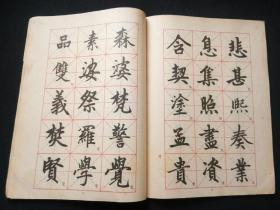 悲甚熙奏業
息集照盡資
含契塗孟貴
森婆梵警覺
素娑祭羅學
品雙義樊賢